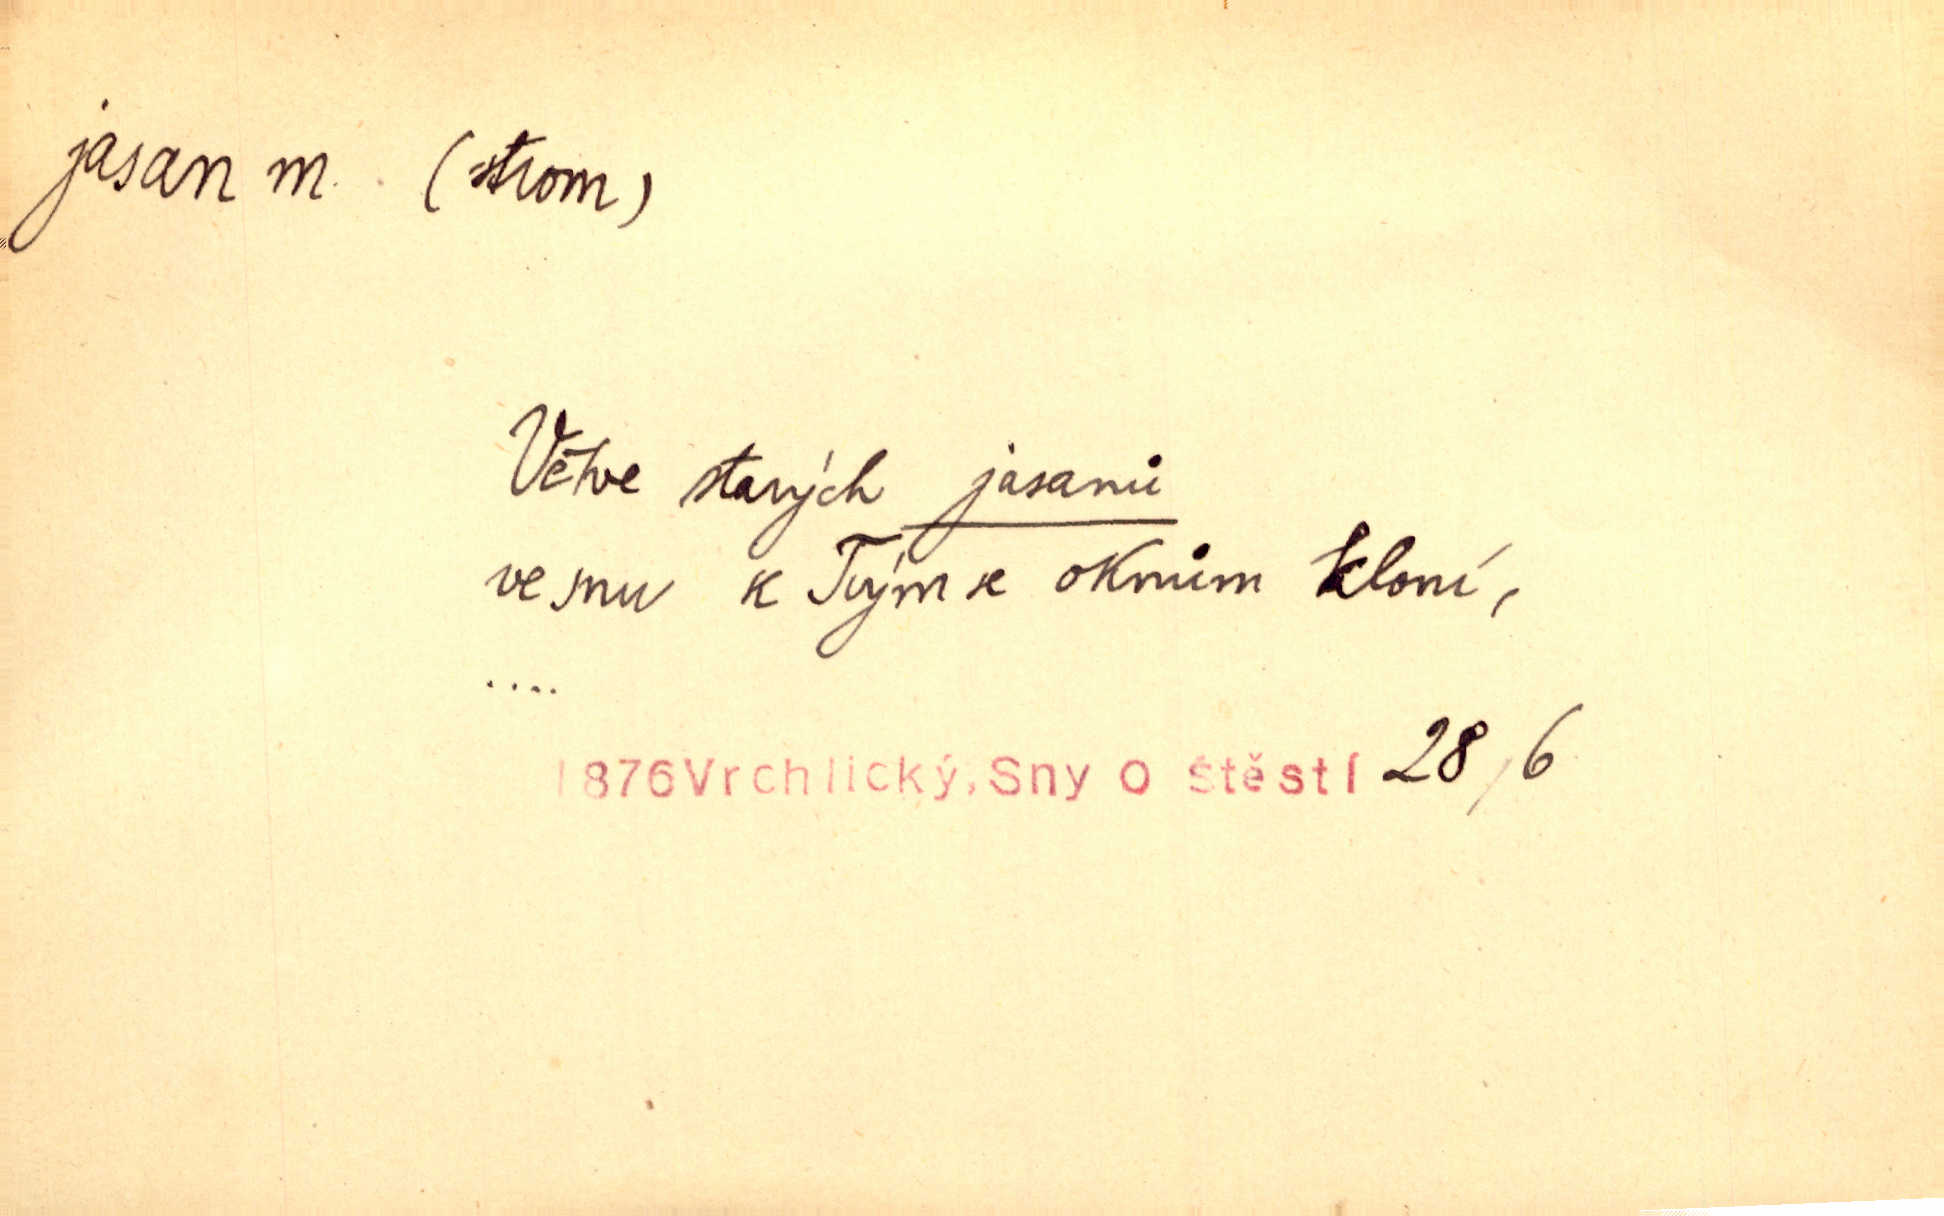 jasan m. (strom)
Větve starých jasanů
ve snu k Tvým se oknům kloní,
....
1876 Vrchlický, Sny o štěstí 28, 6